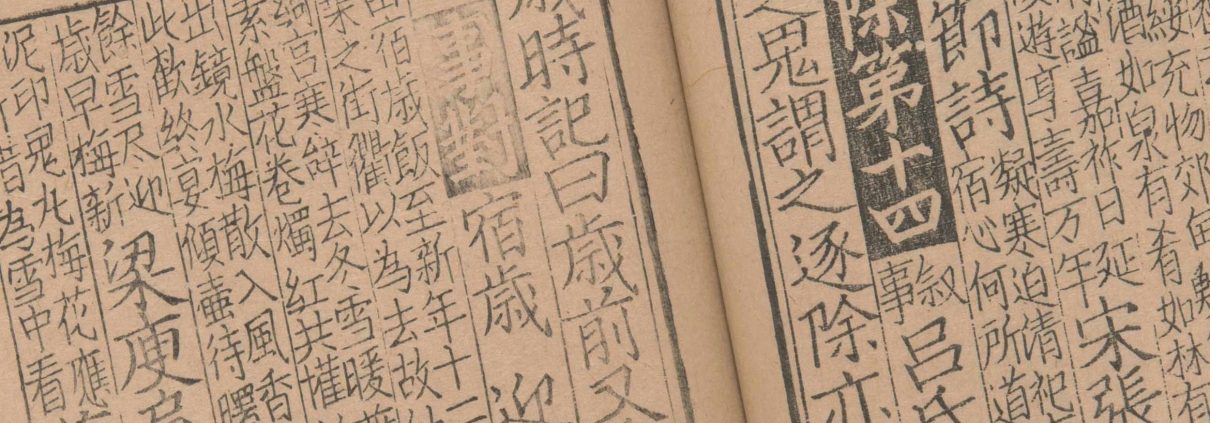 綏充物郊甸
酒如泉有肴如林有
謐喜嘉祚日延
遊享壽万年
宋張
節詩
凝寒迫清祀
宿心何所道
除第十四
叙
事
呂氏
之鬼謂之逐除亦
歳時記曰歳前又
事對
宿歳
迎
宿歳飯至新年十二
之街衢以為去故
宫寒辝去冬雪暖
素盤花卷燭紅共懽
出鏡水梅散入風香
此歡終宴傾壷待曙
餘雪尽迎
歳早梅新
梁庾肩
泥印鬼丸梅花應
昔為雪中看